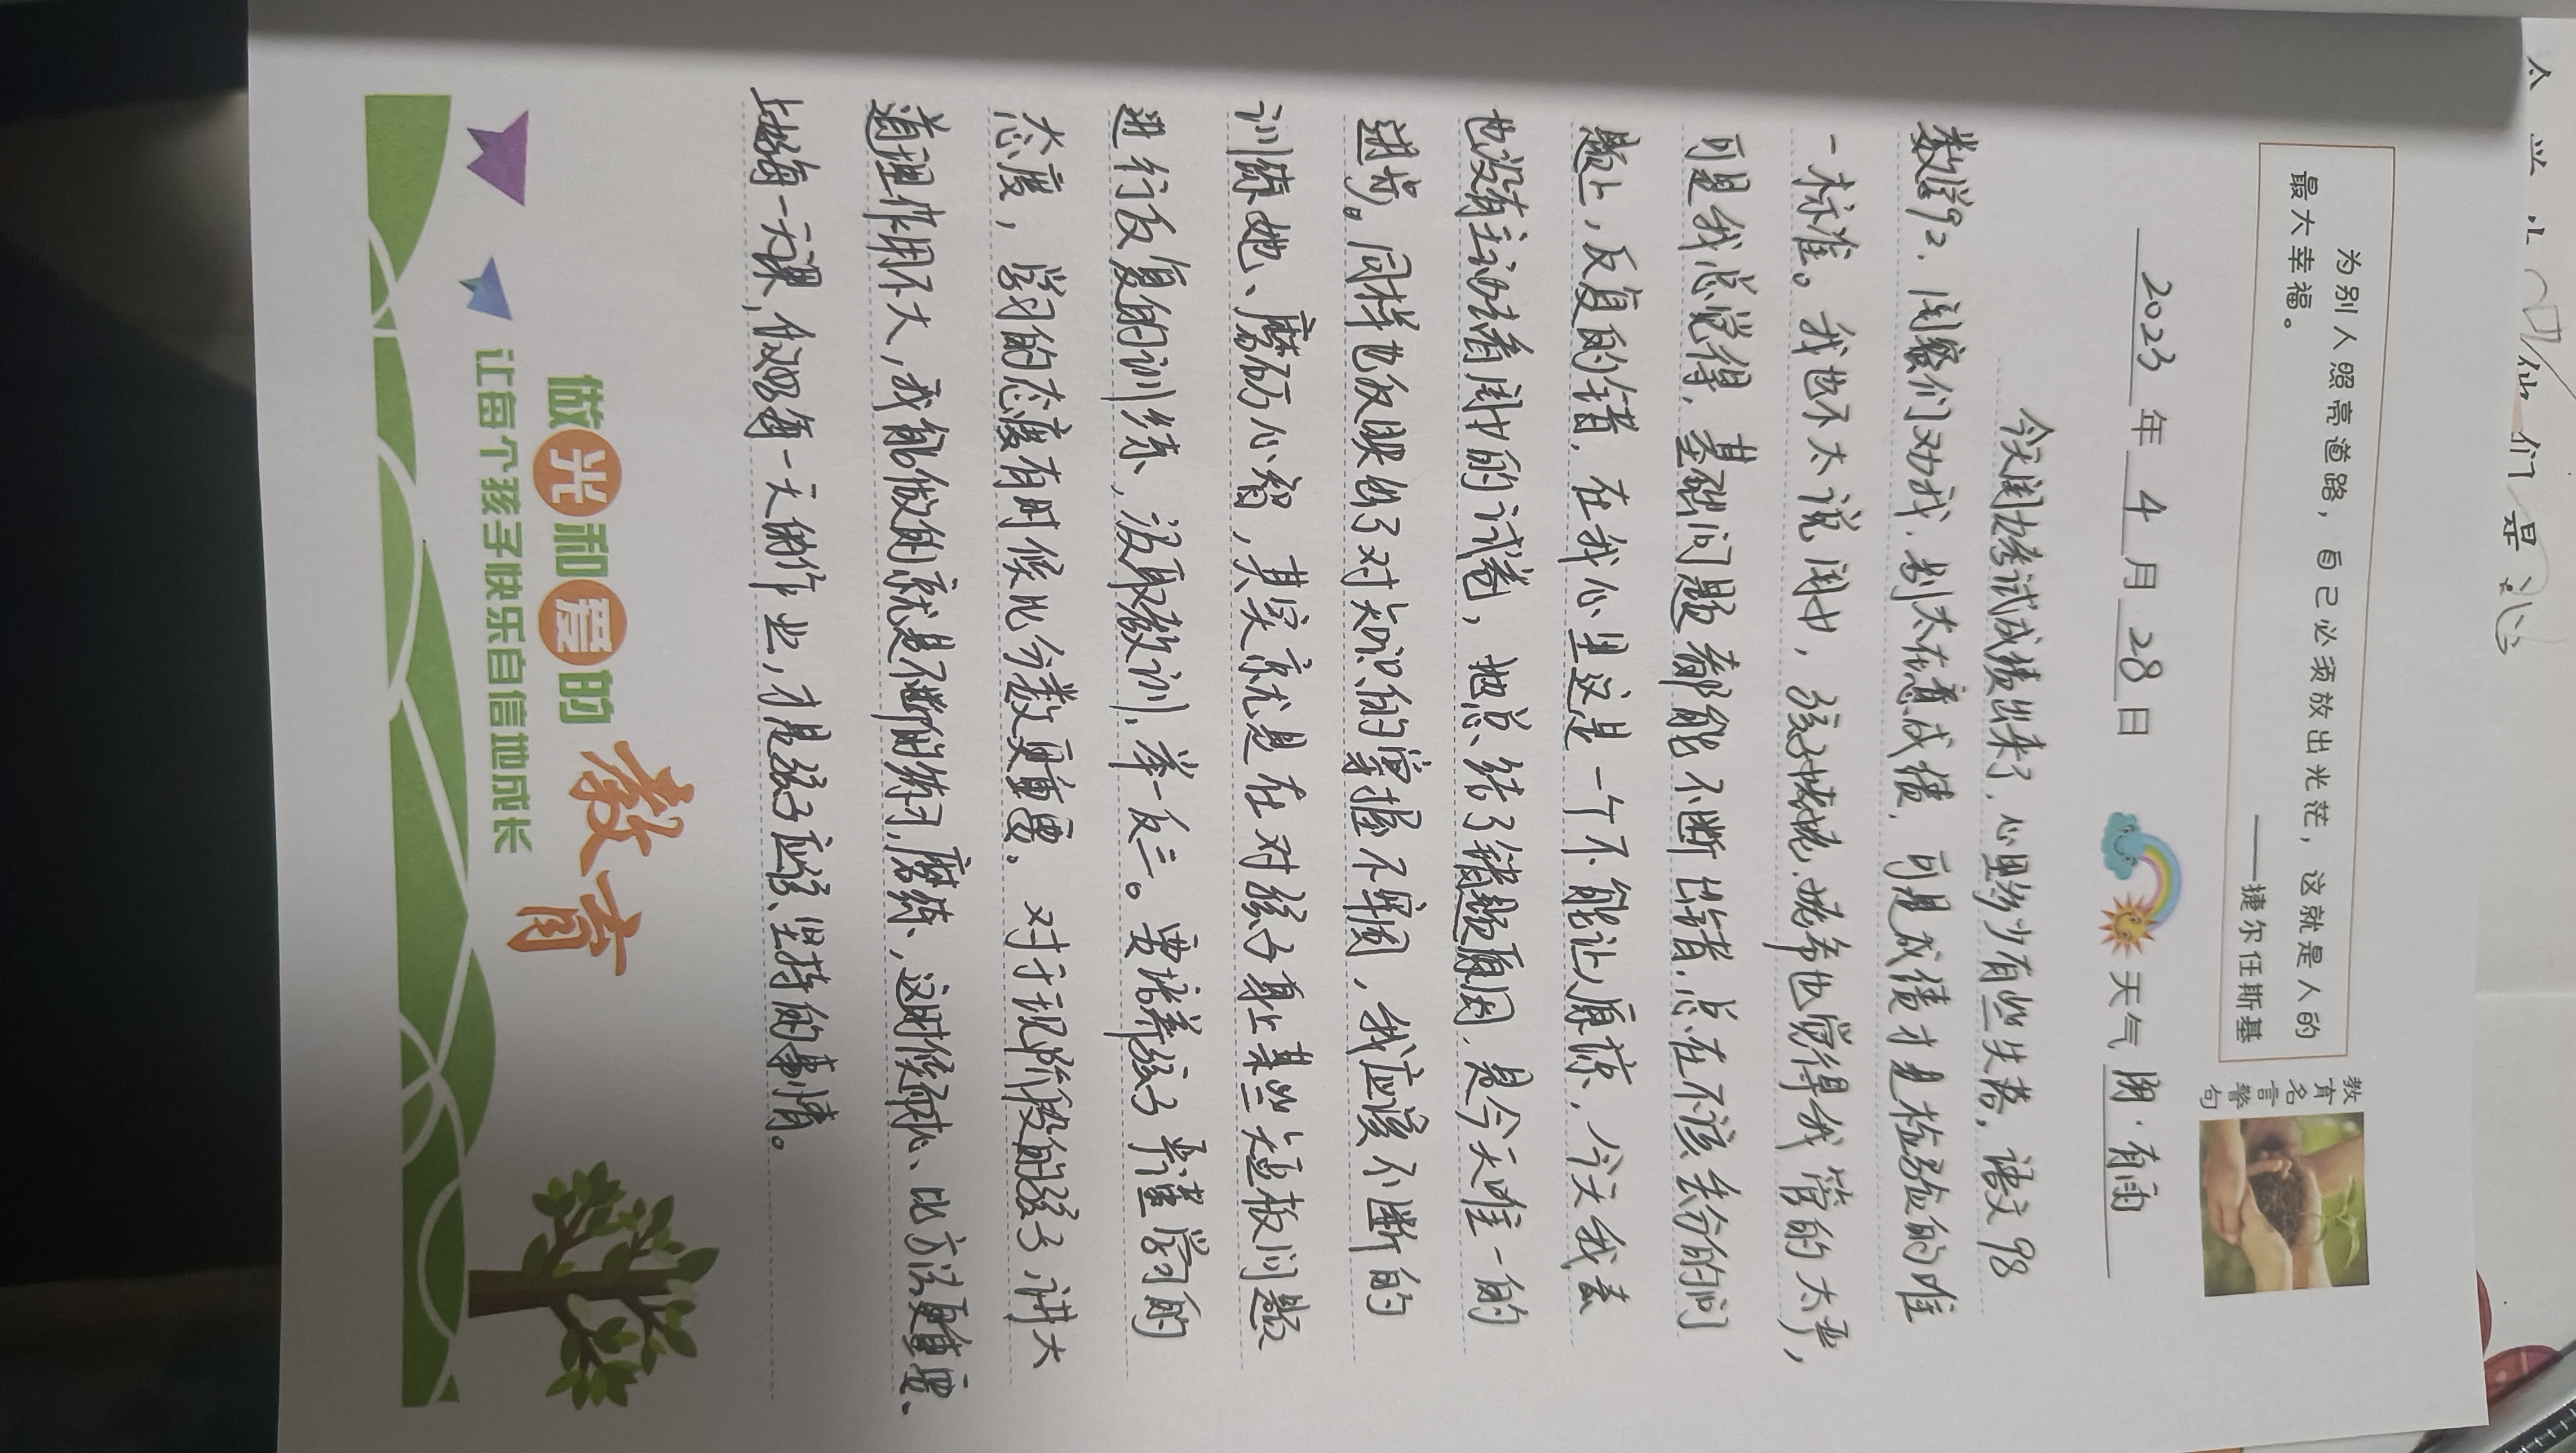 为别人照亮道路，自己必须放出光芒，这就是人的
最大幸福。
——捷尔任斯基
教育名言警句
2023年4月28日 天气 阴·有雨
今天闺女考试成绩出来了，心里多少有些失落。语文98
数学92、闺蜜们劝我，别太在意成绩，可是成绩才是检验的唯
一标准。我也不太说闺女，孩子她爸也觉得我管的太严，
可是我总觉得，基础问题都能不断出错，总在不该丢分的问
题上，反复的错，在我心里这是一个不能让人原谅，今天我去
也没有主动去看闺女的试卷，她总结了错题原因，是今天唯一的
进步。同样也反映出了对知识的掌握不牢固，我应该不断的
训练她、磨砺心智，其实就是在对孩子身上某些短板问题
进行反复的训练，汲取教训，举一反三。要培养孩子严谨学习的
态度，学习的态度有时候比分数更重要。对于现阶段的孩子，讲大
道理作用不大，我能做的就是不断的练习，磨练，这时候、比方法更重要、
上好每一天课，做好每一天的作业，才是孩子应该坚持的事情。
做光和爱的教育
让每个孩子快乐自信地成长